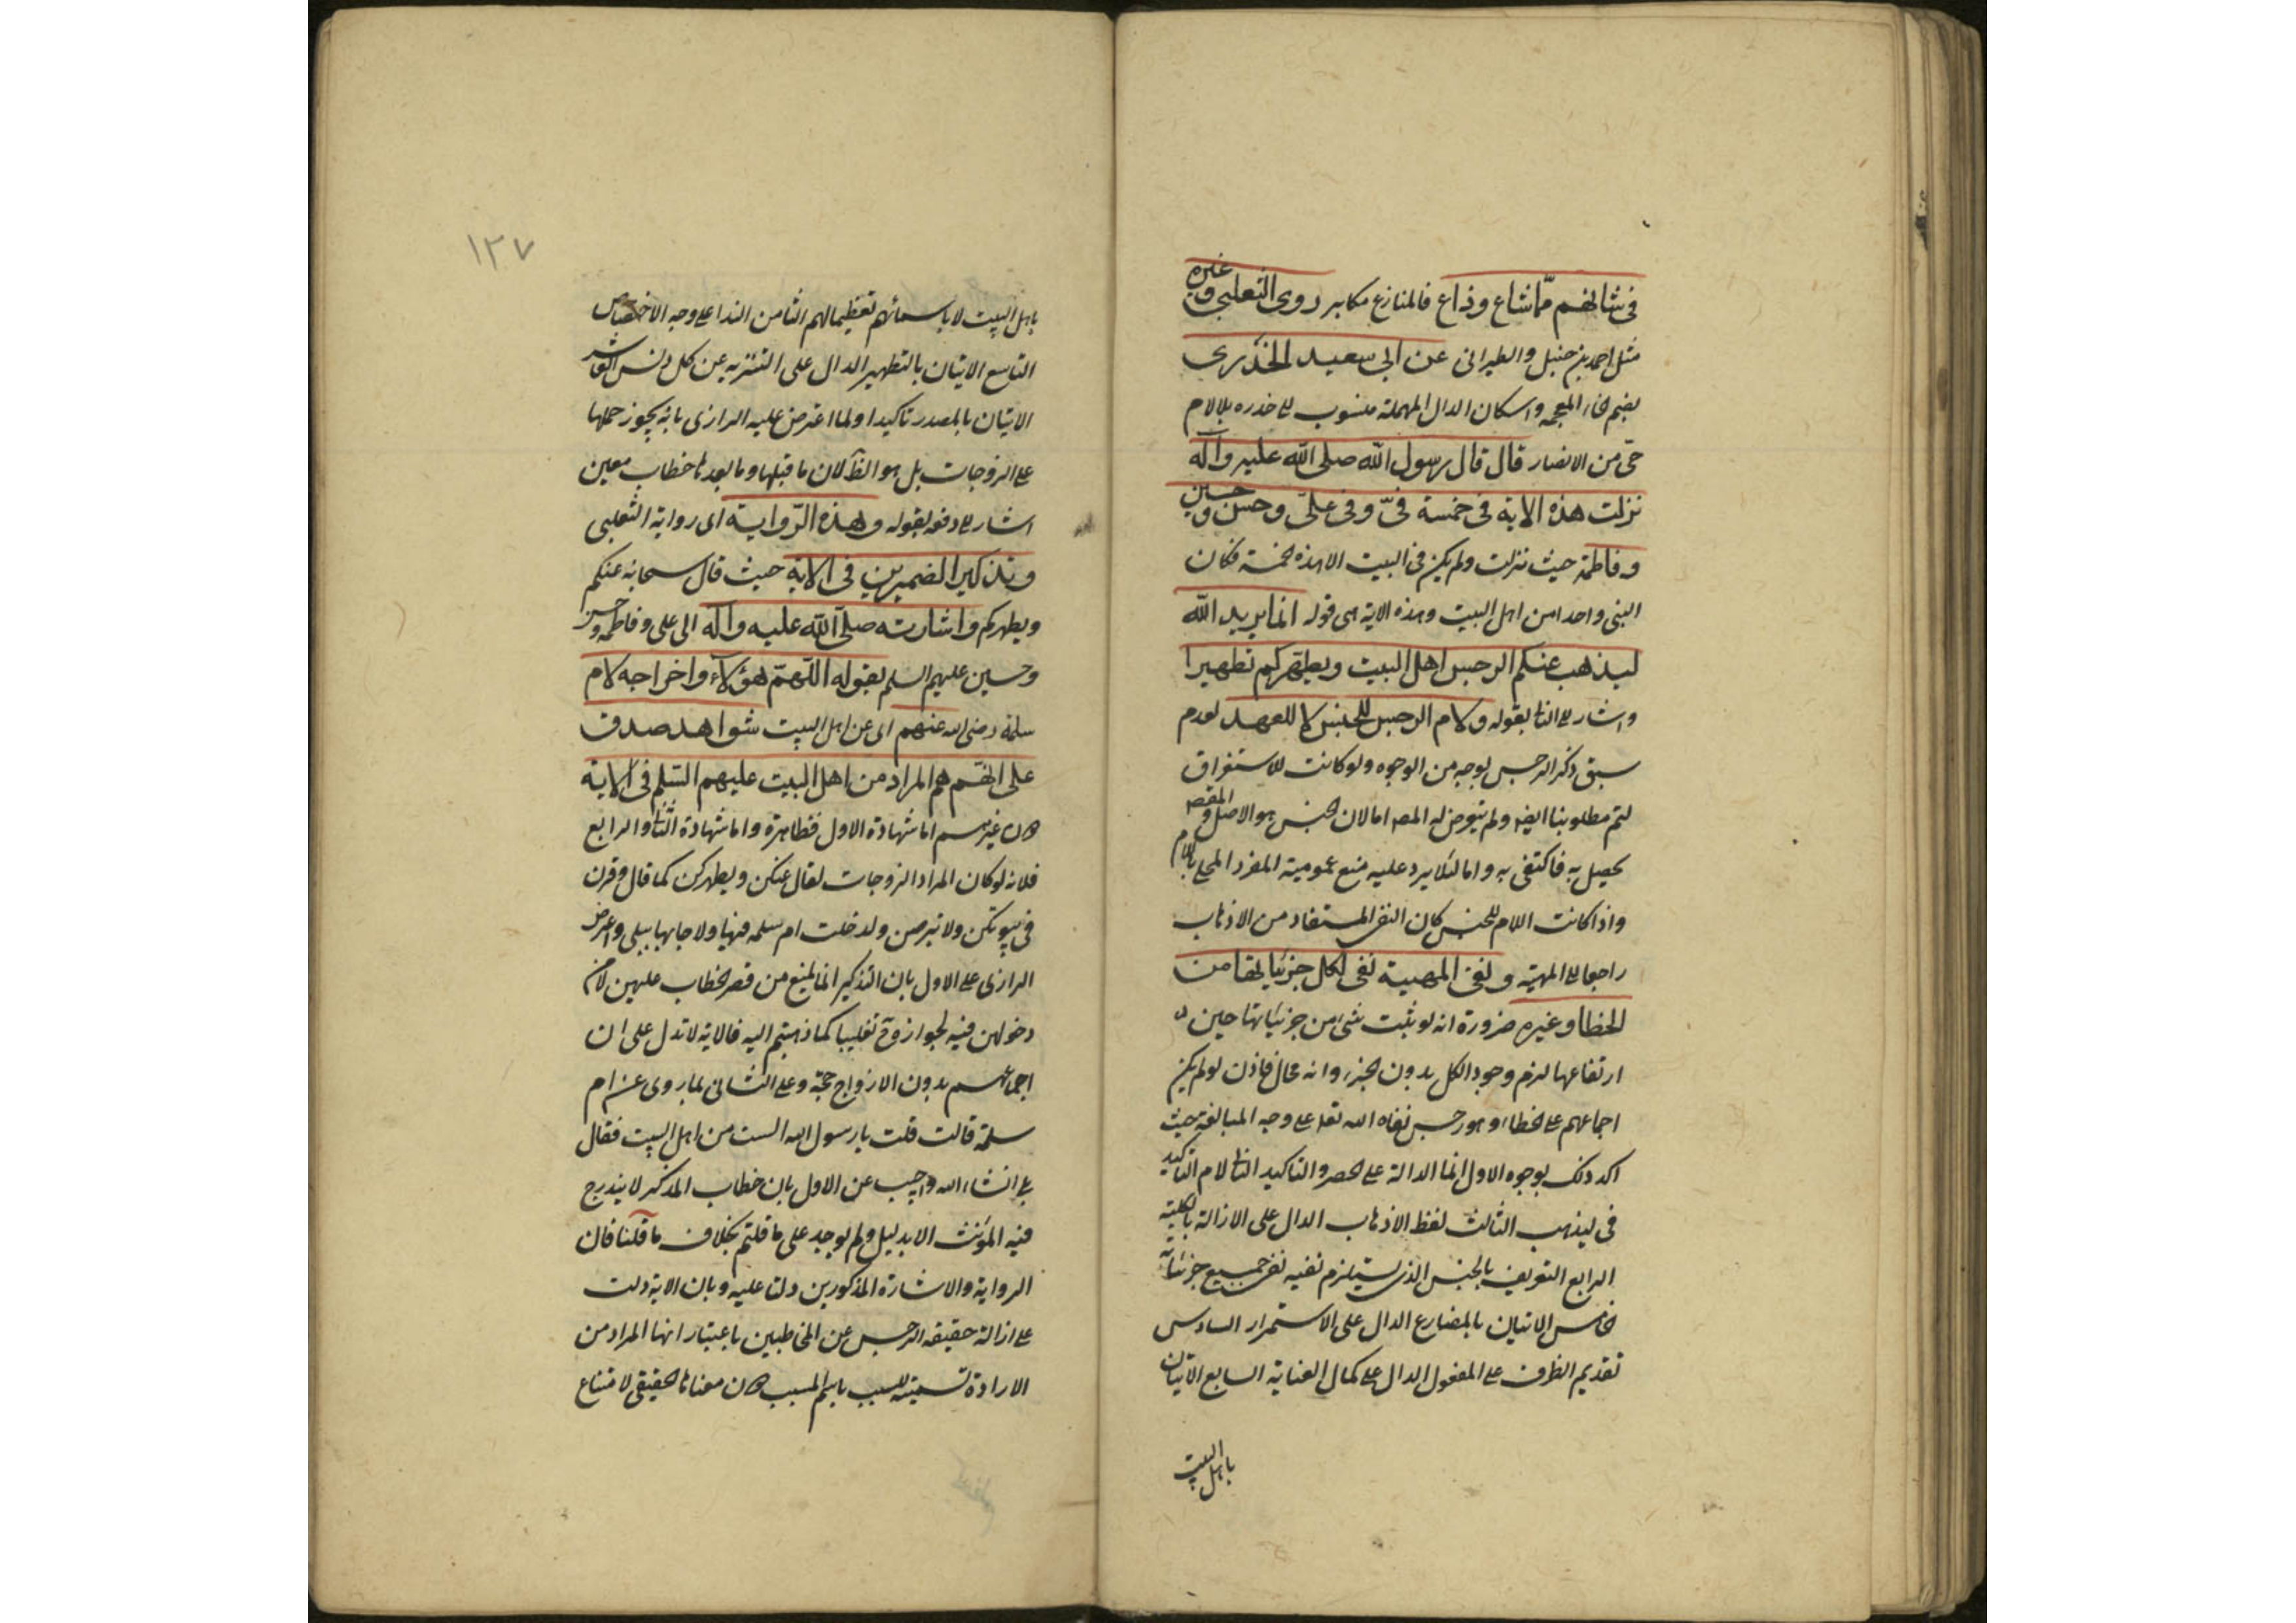 في شانهم مما شاع وذاع فالمنازع مكابر روى الثعلبي وغيره
مثل احمد بن حنبل والطبراني عن ابي سعيد الخدري
بضم الخاء المعجمه واسكان الدال المهملة منسوب الى خدره بلا لام
حي من الانصار قال قال رسول الله صلى الله عليه وآله
نزلت هذه الاية في خمسة فيّ وفي علي وحسن وحسين
وفاطمة حيث نزلت ولم يكن في البيت الا هذه الخمسة فكان
النبي واحدا من اهل البيت وهذه الاية هي قوله انما يريد الله
ليذهب عنكم الرجس اهل البيت ويطهركم تطهيرا
واشار الى الثا بقوله ولام الرجس للجنس لا للعهد لعدم
سبق ذكر الرجس بوجه من الوجوه ولو كانت للاستغراق
لتم مطلوبنا ايضا ولم يتعرض له المصه اما لان الجنس هو الاصل والمقصه
يحصل به فاكتفى به واما لئلا يرد عليه منع عمومية المفرد المحلى باللام
واذا كانت اللام للجنس كان النفي المستفاد من الاذهاب
راجعا الى المهية ونفي المهية نفي لكل جزئياتها من
الخطا وغيره ضرورة انه لو ثبت شيء من جزئياتها حين
ارتفاعها لزم وجود الكل بدون الجزء وانه محال فاذن لو لم يكن
اجماعهم على خطاء وهو رجس نفاه الله تعا على وجه المبالغة حيث
اكد ذلك بوجوه الاول انما الدالة على الحصر والتاكيد الثا لام التاكيد
في ليذهب الثالث لفظ الاذهاب الدال على الازالة بالكلية
الرابع التعريف بالجنس الذي يستلزم نفيه نفي جميع جزئياته
الخامس الاتيان بالمضارع الدال على الاستمرار السادس
تقديم الظرف على المفعول الدال على كمال العناية السابع الاتيان
باهل البيت
١٢٧
باهل البيت لا باسمائهم تعظيما لهم الثامن النداء على وجه الاختصاص
التاسع الاتيان بالتطهير الدال على التنزيه عن كل دنس العاشر
الاتيان بالمصدر تاكيدا ولما اعترض عليه الرازي بانه يجوز حملها
على الزوجات بل هو الظ لان ما قبلها وما بعدها خطاب معهن
اشار الى دفعه بقوله وهذه الرواية اى رواية الثعلبي
وتذكير الضميرين في الاية حيث قال سبحانه عنكم
ويطهركم واشارته صلى الله عليه وآله الى علي وفاطمة وحسن
وحسين عليهم السلم بقوله اللهم هؤلاء واخراجه لام
سلمة رضي الله عنها عنهم اى عن اهل البيت شواهد صدق
على انهم هم المراد من اهل البيت عليهم السلم في الاية
دون غيرهم اما شهادة الاول فظاهرة واما شهادة الثا والرابع
فلانه لو كان المراد الزوجات لقال عنكن ويطهركن كما قال وقرن
في بيوتكن ولا تبرجن ولدخلت ام سلمه فيها ولاجابها ببلى واعترض
الرازي على الاول بان التذكير انما يمنع من قصر الخطاب عليهن لا من
دخولهن فيه لجواز وقوعه تغليبا كما ذهبتم اليه فالاية لا تدل على ان
اجماعهم بدون الازواج حجة وعلى الثاني بما روى عن ام
سلمة قالت قلت يا رسول الله الست من اهل البيت فقال
بلى انشاء الله واجيب عن الاول بان خطاب المذكر لا يندرج
فيه المؤنث الا بدليل ولم يوجد على ما قلتم بخلاف ما قلنا فان
الرواية والاشارة المذكورين دلتا عليه وبان الاية دلت
على ازالة حقيقة الرجس عن المخاطبين باعتبار انها المراد من
الارادة تسمية للسبب باسم المسبب دون معناها الحقيقي لامتناع